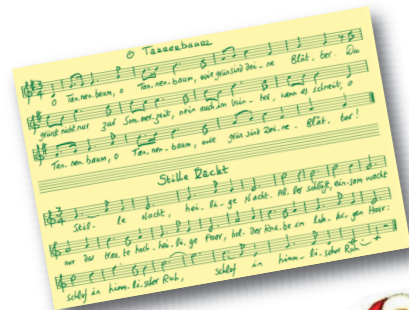 O Tannenbaum
O Tan-nen-baum, o Tan-nen-baum, wie grün sind dei-ne Blät-ter. Du
grünst nicht nur zur Som-mer-zeit, nein auch im Win-ter, wenn es schneit, o
Tan-nen-baum, o Tan-nen-baum, wie grün sind dei-ne Blät-ter!
Stille Nacht
Stil-le Nacht, hei-li-ge Nacht. Al-les schläft, ein-sam wacht
nur das trau-te hoch-hei-li-ge Paar, hol-der Kna-be im lok-ki-gen Haar:
schlaf in himm-li-scher Ruh, schlaf in himm-li-scher Ruh